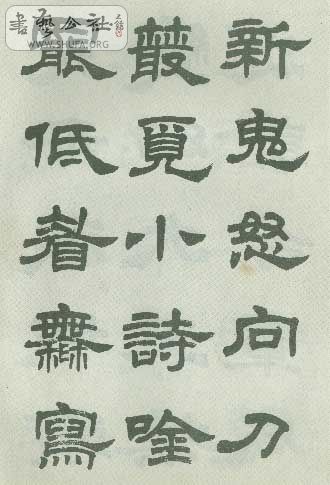 書藝公社
WWW.SHUFA.ORG
新鬼怒向刀
叢覓小詩唫
罷低眉無寫